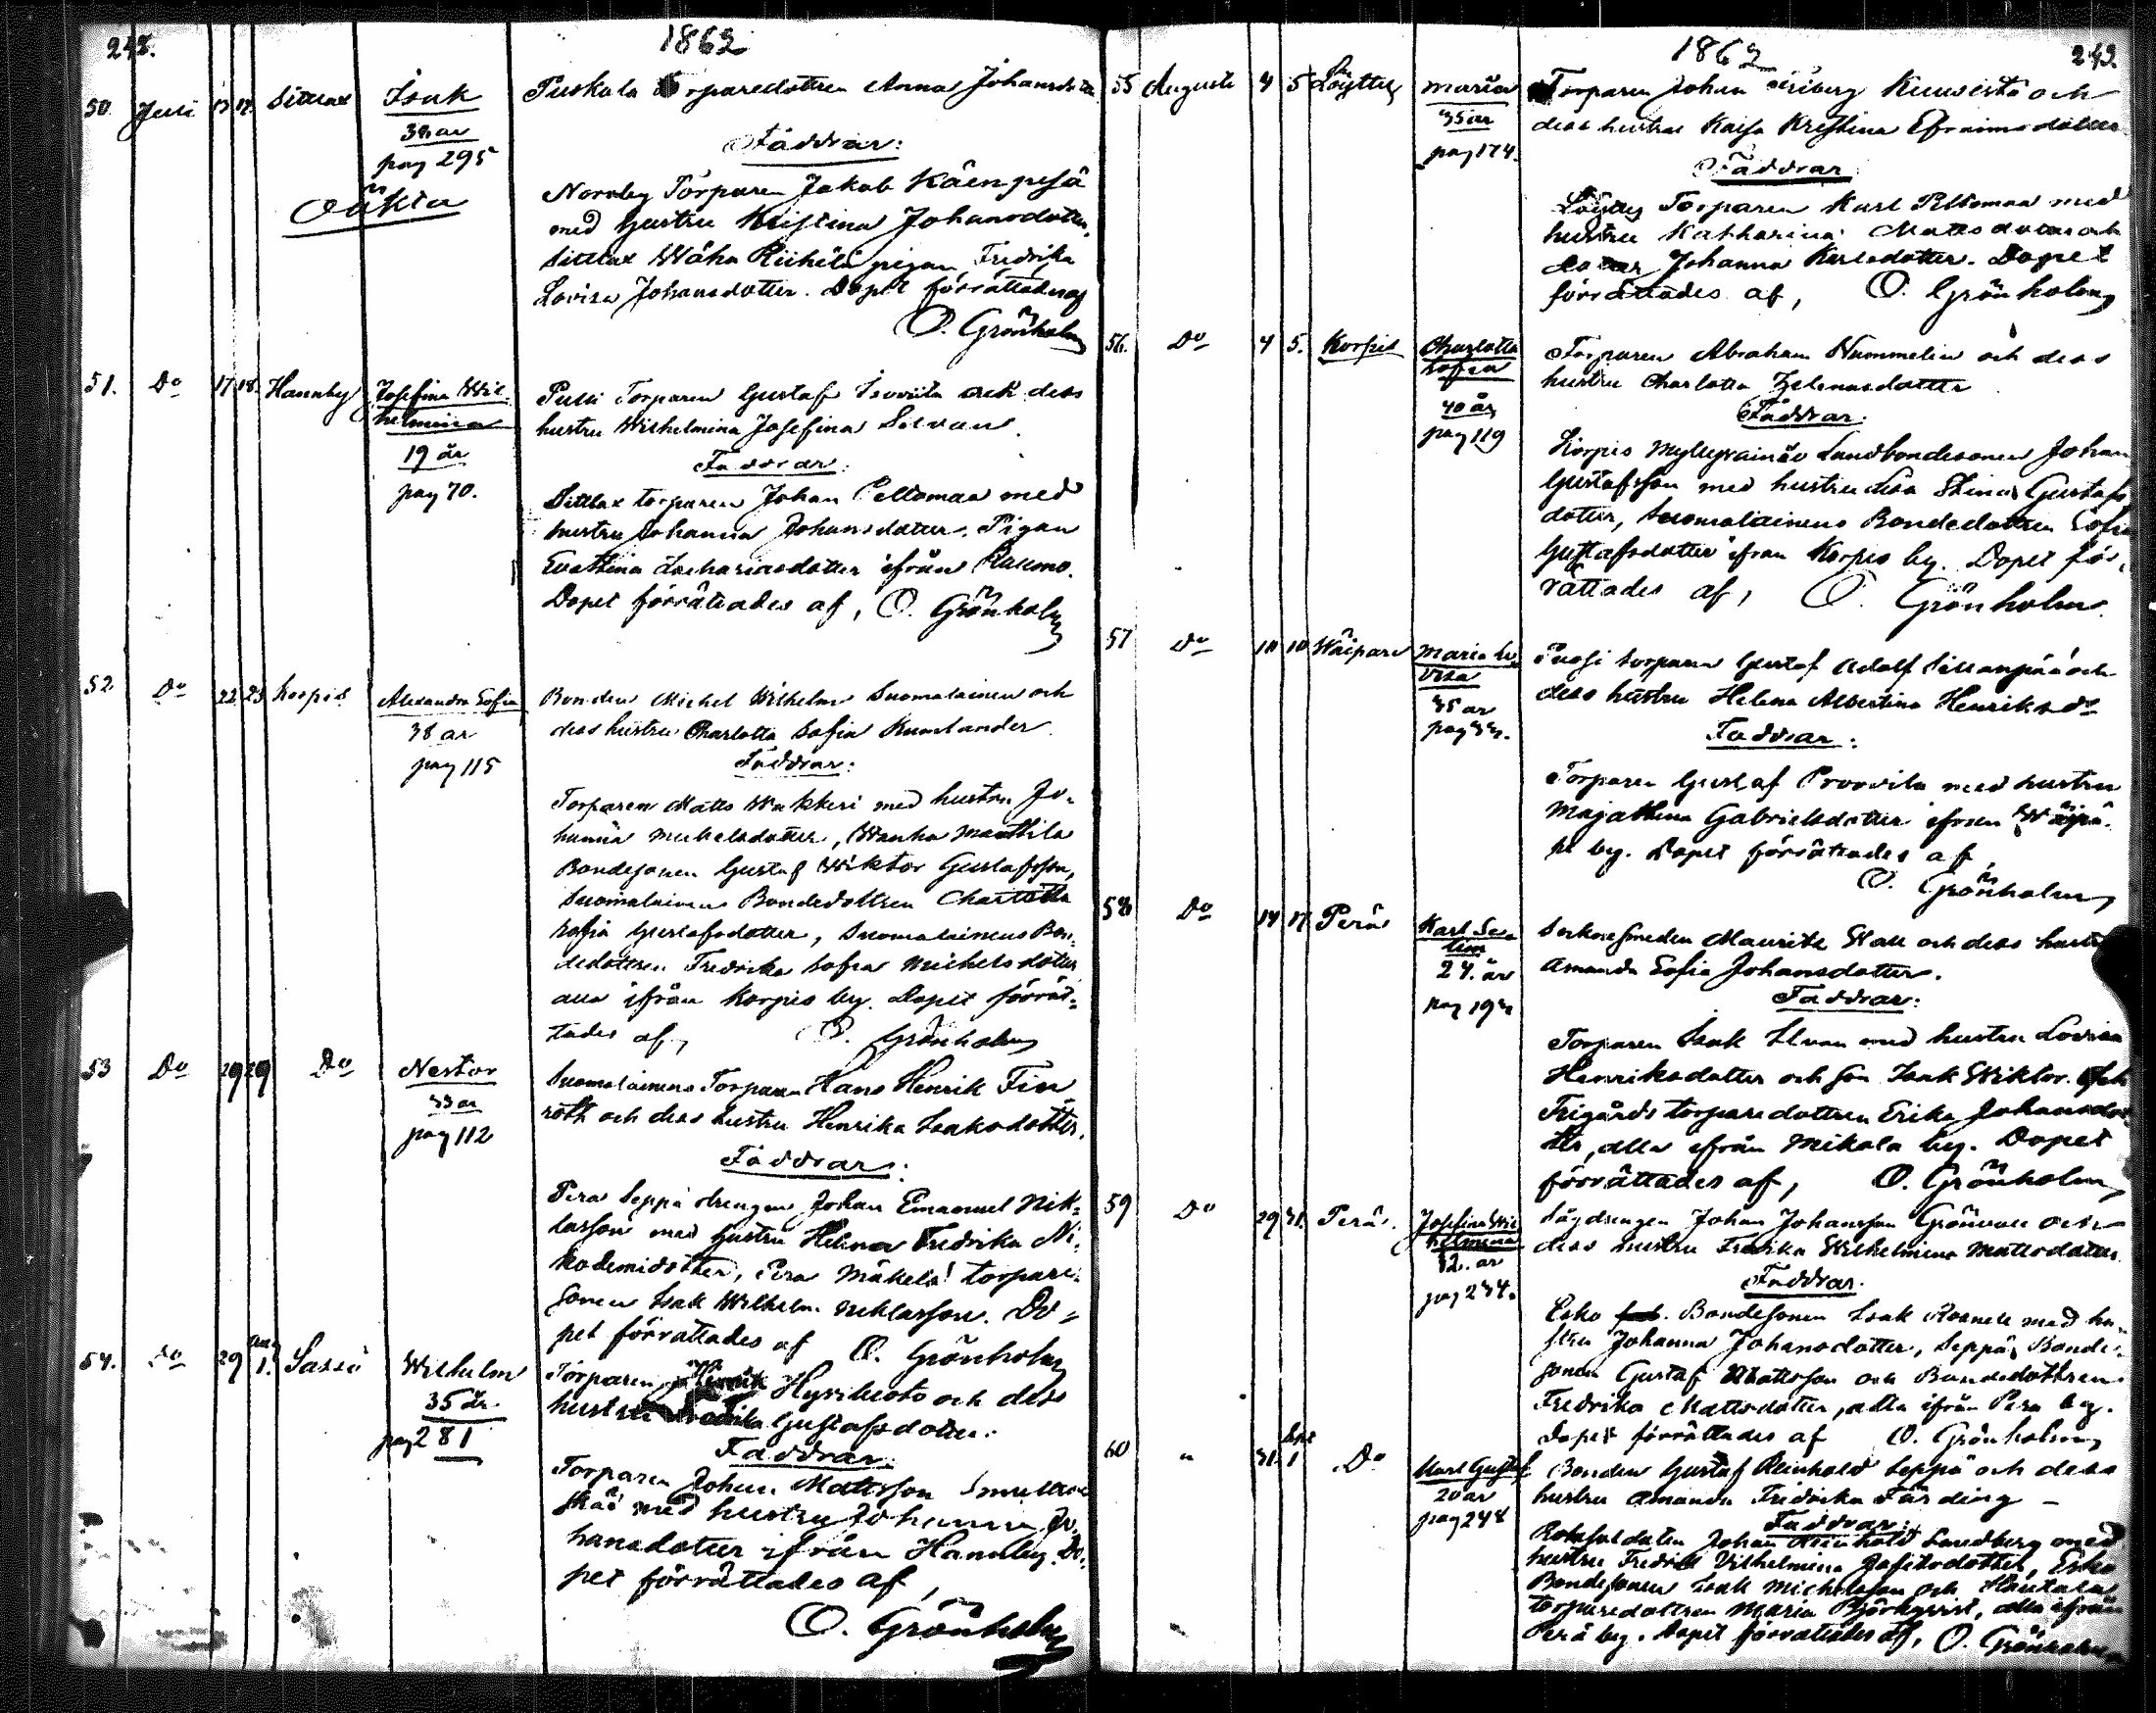 242.
1862
50. Juli 17 17. Sittlax Isak Puskala Torparedottren Anna Johansdotter
38 år
pag 295
Oäkta
Faddrar:
Norrby Torparen Jakob Käenpesä
med hustru Kristina Johansdotter,
Sittlax Wäha Riihelä pigan Fredrika
Lovisa Johansdotter. Dopet förrättades af
O. Grönholm
51. Do 17 18. Hannby Josefina Wil-
helmina
19 år
pag 70.
Pussi Torparen Gustaf Isoviita och dess
hustru Wilhelmina Josefina Silvan
Faddrar:
Sittlax torparen Johan Peltomaa med
hustru Johanna Johansdotter. Pigan
Eva Stina Zachariasdotter ifrån Raumo.
Dopet förrättades af, O. Grönholm
52 Do 22 23 Korpis Alexandra Sofia
38 år
pag 115
Bonden Michel Wilhelm Suomalainen och
dess hustru Charlotta Sofia Kumlander
Faddrar:
Torparen Matts Wakkeri med hustru Jo-
hanna Michelsdotter, Wanha Manttila
Bondesonen Gustaf Wiktor Gustafsson,
Suomalainen Bondedottren Charlotta
Sofia Gustafsdotter, Suomalainens Bon-
dedottren Fredrika Sofia Michelsdotter
alla ifrån Korpis by. Dopet förrät-
tades af, O. Grönholm
53 Do 29 29 Do Nestor
33 år
pag 112
Suomalainens Torparen Hans Henrik Fin
roth och dess hustru Henrika Isaksdotter.
Faddrar:
Perä Seppä drengen Johan Emanuel Nik-
lasson med hustru Helena Fredrika Ni-
kodemidotter, Perä Mäkelä torpare-
sonen Isak Wilhelm Niklasson. Do-
pet förrättades af O. Grönholm
54. Do 29 Aug 1. Sassi Wilhelm
35 år.
pag 281
Torparen Henrik Hyvikuoto och dess
hustru Fredrika Gustafsdotter.
Faddrar
Torparen Johan Mattsson
med hustru Johanna Jo-
hansdotter ifrån Hannby. Do-
pet förrättades af,
O. Grönholm
1862
243.
55 Augusti 4 5 Löyttylä Maria
35 år
pag 174.
Torparen Johan Friberg Kuusistä och
dess hustru Kaisa Kristina Efraimsdotter
Faddrar
Löyttylä Torparen Karl Peltomaa med
hustru Katharina Mattsdotter och
dotter Johanna Karlsdotter. Dopet
förrättades af, O. Grönholm
56. Do 4 5. Korpis Charlotta
Sofia
40 år
pag 119
Torparen Abraham Nummelin och dess
hustru Charlotta Helenasdotter
Faddrar:
Korpis Myllyvainio Landbondesonen Johan
Gustafsson med hustru Lisa Stina Gustafs
dotter, Suomalainens Bondedottren Sofia
Gustafsdotter ifrån Korpis by. Dopet för-
rättades af, O. Grönholm.
57 Do 10 10 Wäipare Maria Lo
visa
35 år
Puosi torparen Gustaf Adolf Sillanpää och
dess hustru Helena Albertina Henriksdr
Faddrar:
Torparen Gustaf Provvila med hustru
Maja Stina Gabrielsdotter ifrån Wäipä-
re by. Dopet förrättades af,
O. Grönholm
58 Do 14 17 Perä Karl Se
lim
24. år
Sockensmeden Mauritz Wall och dess hustru
Amanda Sofia Johansdotter.
Faddrar:
Torparen Isak Silvan med hustru Lovisa
Henriksdotter och son Isak Wiktor. och
Frigårds torparedottren Erika Johansdot-
ter, alla ifrån Mikola by. Dopet
förrättades af, O. Grönholm
59 Do 29 31. Perä. Josefina Wil
helmina
32. år
pag 234.
Sågdrengen Johan Johansson Grönroos och
dess hustru Fredrika Wilhelmina Mattsdotter
Faddrar.
Esko Bondesonen Isak Rosnell med hu-
stru Johanna Johansdotter, Seppä Bonde-
sonen Gustaf Mattsson och Bondedottren
Fredrika Mattsdotter, alla ifrån Perä by.
Dopet förrättades af O. Grönholm
60 " 31. Sept 1 Do Karl Gustaf
20 år
pag 248
Bonden Gustaf Reinhold Seppä och dess
hustru Amanda Fredrika Färding -
Faddrar:
Rotesoldaten Johan Reinhold Sandberg med
hustru Fredrika Vilhelmina Josefsdotter, Esko
Bondesonen Isak Michelsson och Hautala
torparedottren Maria Björkqvist, alla ifrån
Perä by. Dopet förrättades af, O. Grönholm